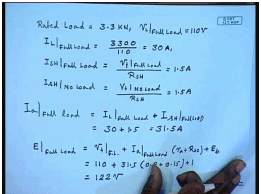 Rated Load = 3.3 KW, Vt|Full Load = 110V
IL|Full Load = 3300/110 = 30 A,
ISH|Full Load = Vt|Full Load/RSH = 1.5A
ISH|No Load = Vt|No Load/RSH = 1.5A
Ia|Full Load = IL|Full Load + ISH|Full Load
= 30 + 1.5 = 31.5A
E|Full Load = Vt|F.L. + Ia|Full Load (ra + RSE) + Eb
= 110 + 31.5 (0.2 + 0.15) + 1
= 122 V